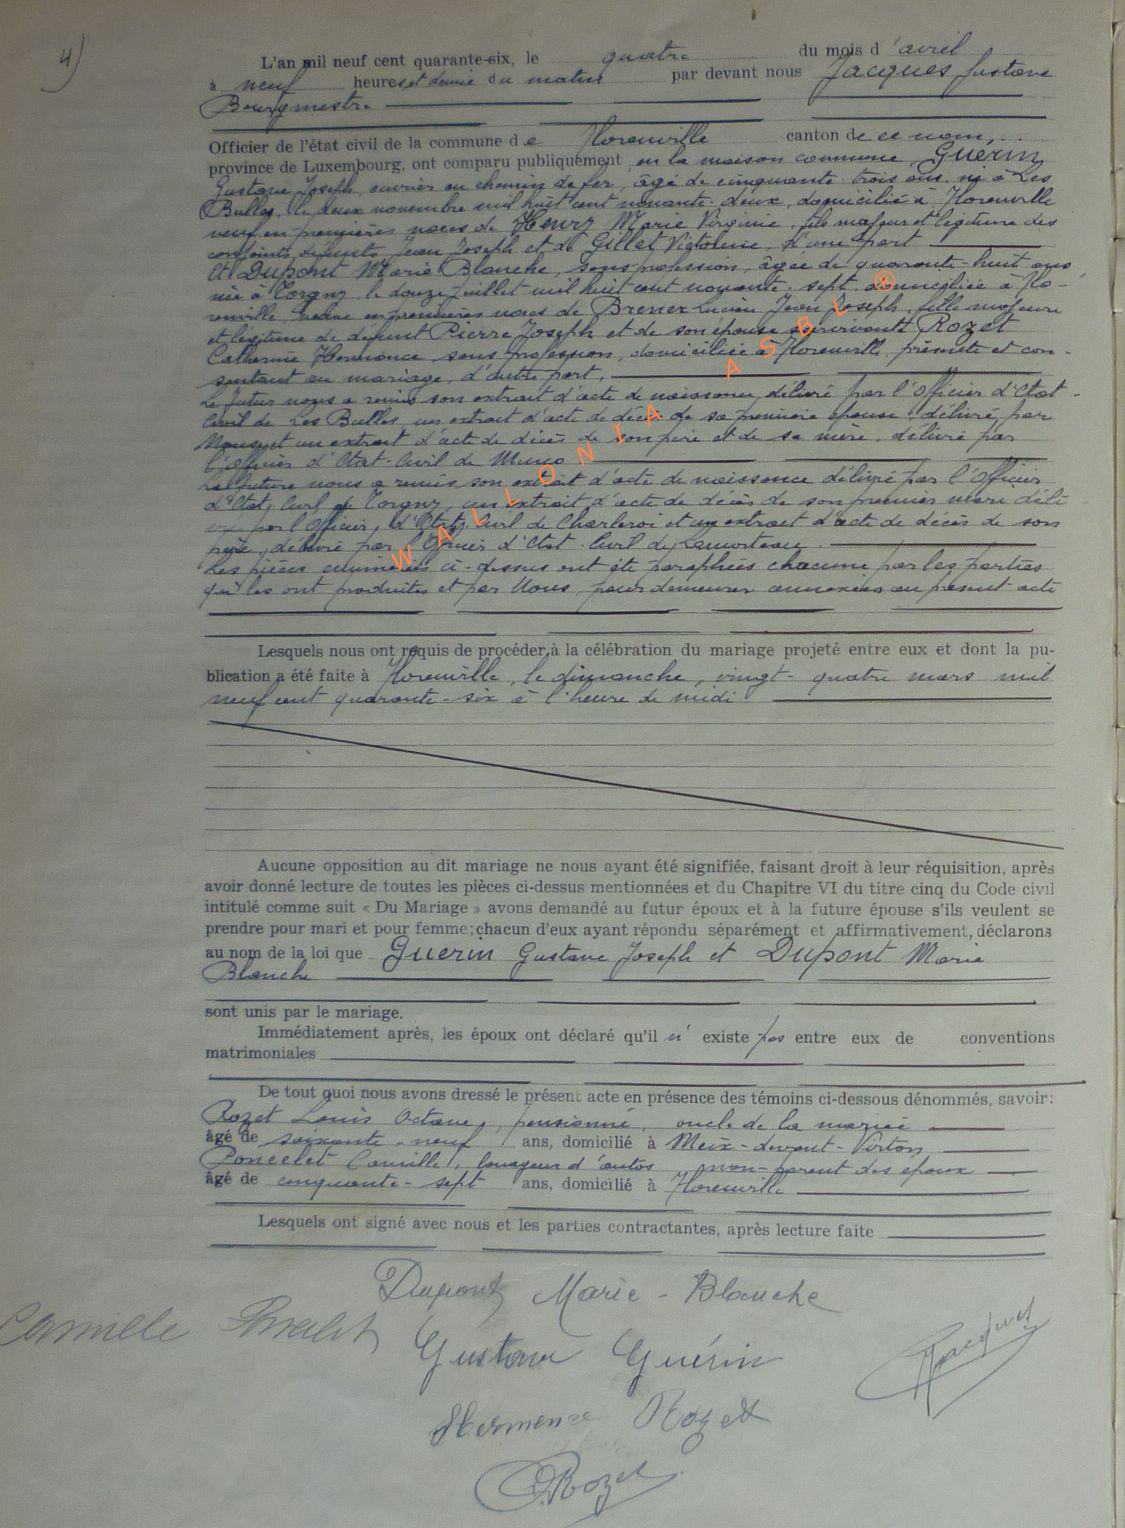 4)
L'an mil neuf cent quarante-six, le quatre du mois d'avril
à neuf heures et demie du matin par devant nous Jacques Gustave
Bourgmestre
Officier de l'état civil de la commune de Florenville canton de ce nom,
province de Luxembourg, ont comparu publiquement en la maison commune Guérin
Gustave Joseph, ouvrier au chemin de fer, âgé de cinquante trois ans, né à Les
Bulles, le deux novembre mil huit cent nonante-deux, domicilié à Florenville
veuf en premières noces de Henry Marie Virginie, fils majeur et légitime des
conjoints défunts Jean Joseph et de Gillet Victorine, d'une part
Et Dupont Marie Blanche, sans profession, âgée de quarante-huit ans
née à Torgny le douze juillet mil huit cent nonante-sept, domiciliée à Flo-
renville, veuve en premières noces de Brener Lucien Jean Joseph, fille majeure
et légitime de défunt Pierre Joseph et de son épouse survivante Rozet
Catherine Hermance sans profession, domiciliée à Florenville, présente et con-
sentant au mariage, d'autre part.
Le futur nous a remis son extrait d'acte de naissance délivré par l'Officier d'Etat-
Civil de Les Bulles, un extrait d'acte de décès de sa première épouse délivré par
Nous, et un extrait d'acte de décès de son père et de sa mère, délivré par
l'Officier d'Etat-Civil de Muno
La future nous a remis son extrait d'acte de naissance délivré par l'Officier
d'Etat-Civil de Torgny, un extrait d'acte de décès de son premier mari déli-
vré par l'Officier d'Etat-Civil de Charleroi et un extrait d'acte de décès de son
père, délivré par l'Officier d'Etat-Civil de Lamorteau.
Les pièces énumérées ci-dessus ont été paraphées chacune par les parties
qui les ont produites et par Nous, pour demeurer annexées au présent acte
Lesquels nous ont requis de procéder à la célébration du mariage projeté entre eux et dont la pu-
blication a été faite à Florenville, le dimanche, vingt-quatre mars mil
neuf cent quarante-six à l'heure de midi
Aucune opposition au dit mariage ne nous ayant été signifiée, faisant droit à leur réquisition, après
avoir donné lecture de toutes les pièces ci-dessus mentionnées et du Chapitre VI du titre cinq du Code civil
intitulé comme suit « Du Mariage » avons demandé au futur époux et à la future épouse s'ils veulent se
prendre pour mari et pour femme; chacun d'eux ayant répondu séparément et affirmativement, déclarons
au nom de la loi que Guerin Gustave Joseph et Dupont Marie
Blanche
sont unis par le mariage.
Immédiatement après, les époux ont déclaré qu'il n'existe pas entre eux de conventions
matrimoniales
De tout quoi nous avons dressé le présent acte en présence des témoins ci-dessous dénommés, savoir:
Rozet Louis Octave, pensionné, oncle de la mariée
âgé de soixante-neuf ans, domicilié à Meix-devant-Virton
Poncelet Camille, louageur d'autos non-parent des époux
âgé de cinquante-sept ans, domicilié à Florenville
Lesquels ont signé avec nous et les parties contractantes, après lecture faite
Dupont Marie-Blanche
Camille Poncelet
Gustave Guérin
Jacques
Hermence Rozet
O. Rozet
WALLONIA ASBL ®